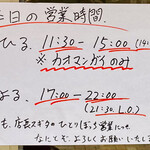 本日の営業時間.
ひる. 11:30 - 15:00 (14:
※ カオマンガイのみ
よる. 17:00 - 22:00
(21:30 L.O)
も、店長スギタのひとりぼっち営業につき
なにとぞ、よろしくお願いいたし